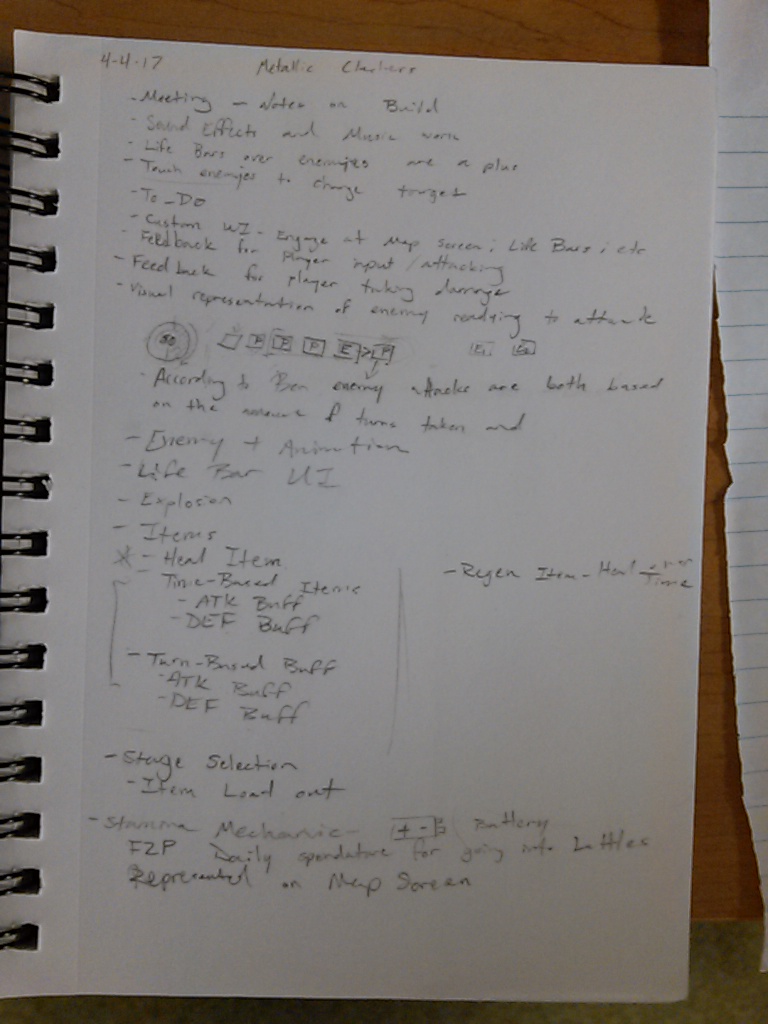 4-4-17 Metallic Clashers
- Meeting - Notes on Build
- Sound Effects and Music work
- Life Bars over enemies are a plus
- Touch enemies to change target
- To-Do
- Custom UI - Engage at Map screen; Life Bars; etc
- Feedback for Player input / attacking
- Feedback for player taking damage
- Visual representation of enemy readying to attack
50 P P P E > P E1 E2
- According to Ben enemy attacks are both based
on the amount of turns taken and
- Enemy + Animation
- Life Bar UI
- Explosion
- Items
* - Heal Item
- Regen Item - Heal over Time
- Time-Based Items
- ATK Buff
- DEF Buff
- Turn-Based Buff
- ATK Buff
- DEF Buff
- Stage Selection
- Item Load out
- Stamina Mechanic - + - Battery
F2P Daily spendature for going into battles
Represented on Map Screen